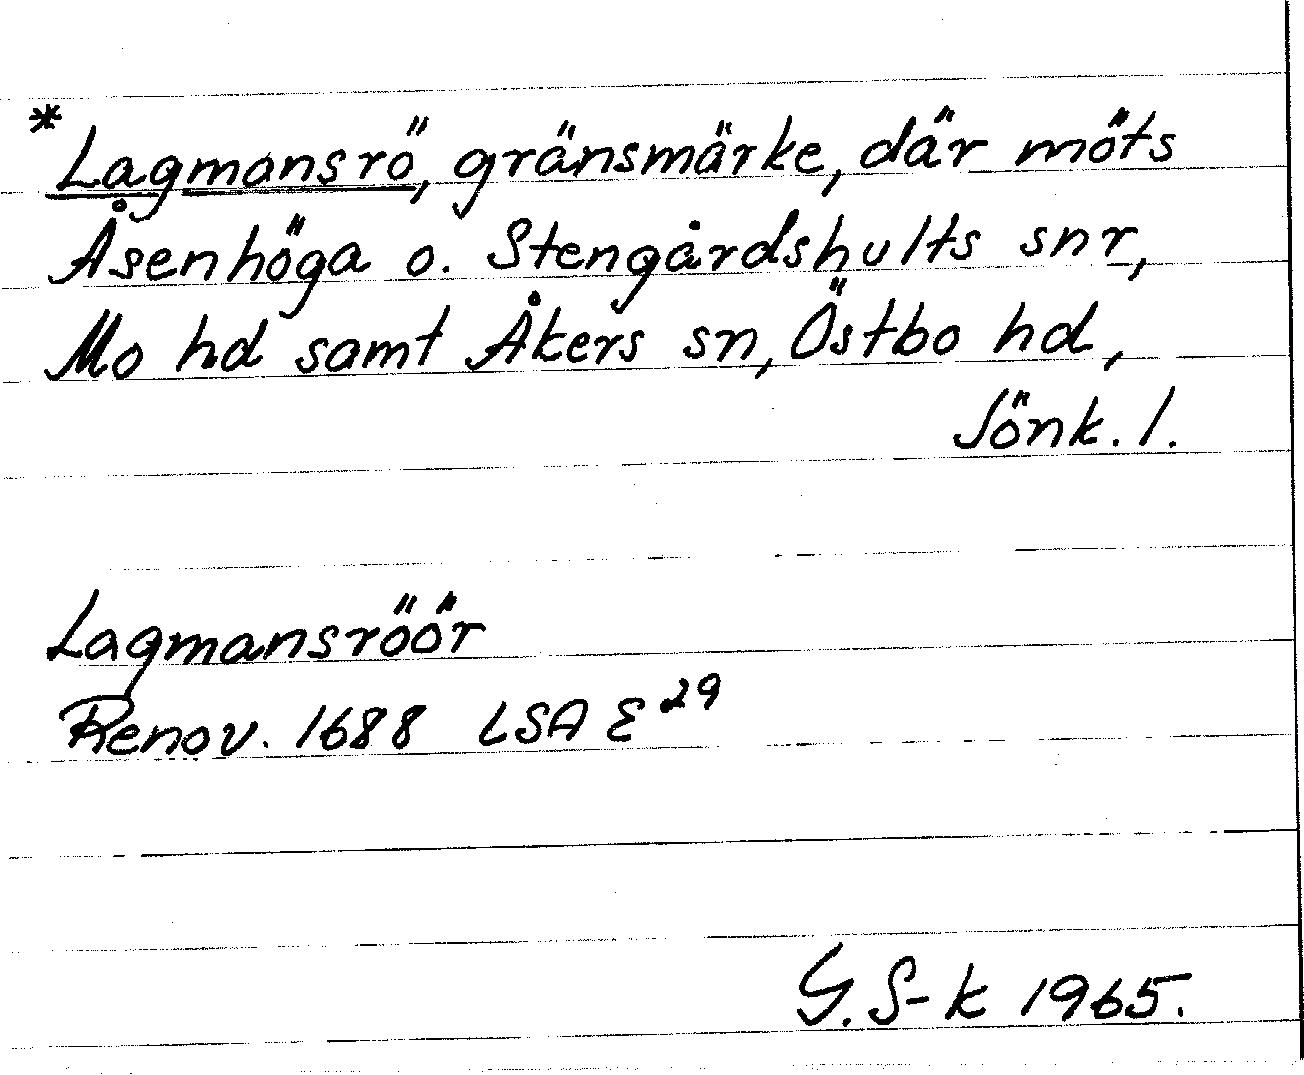 *Lagmansrö, gränsmärke, där möts
Åsenhöga o. Stengårdshults snr,
Mo hd samt Åkers sn, Östbo hd,
Jönk. l.
Lagmansröör
Renov. 1688 LSA E 29
G. S-k 1965.